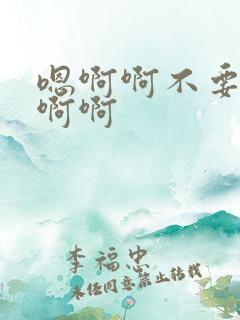 嗯啊啊不要
啊啊
李福忠
未经同意禁止转载